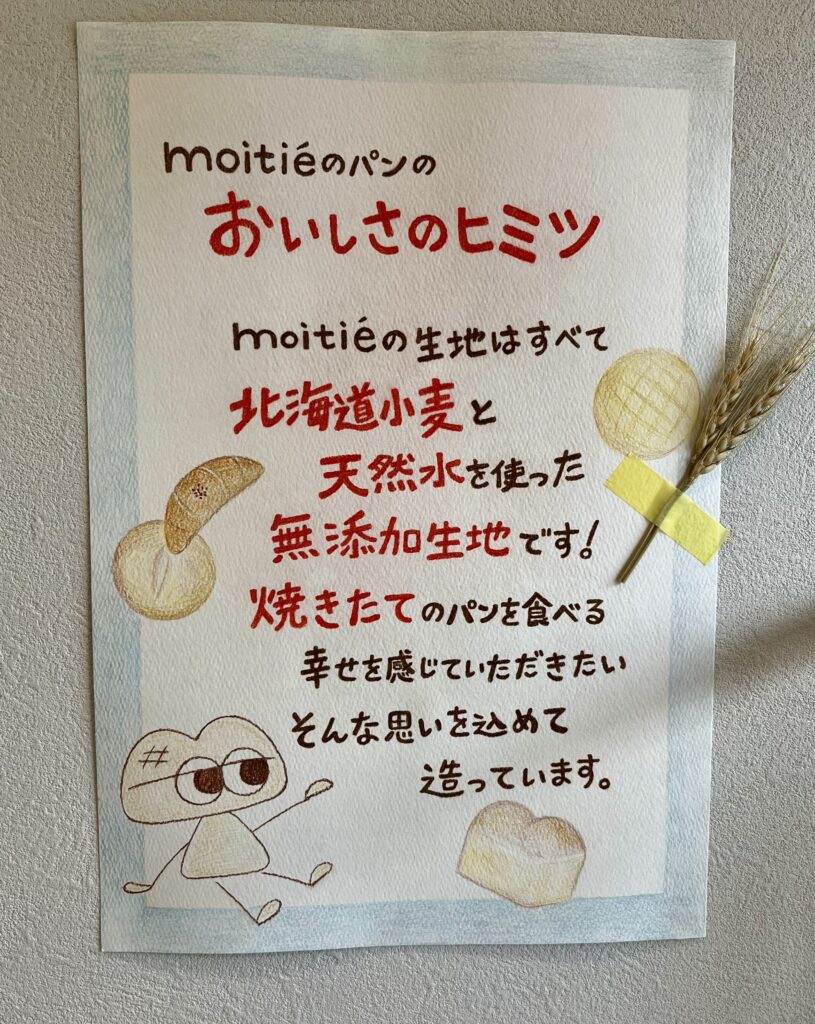 moitiéのパンの
おいしさのヒミツ
moitiéの生地はすべて
北海道小麦と
天然水を使った
無添加生地です!
焼きたてのパンを食べる
幸せを感じていただきたい
そんな思いを込めて
造っています。